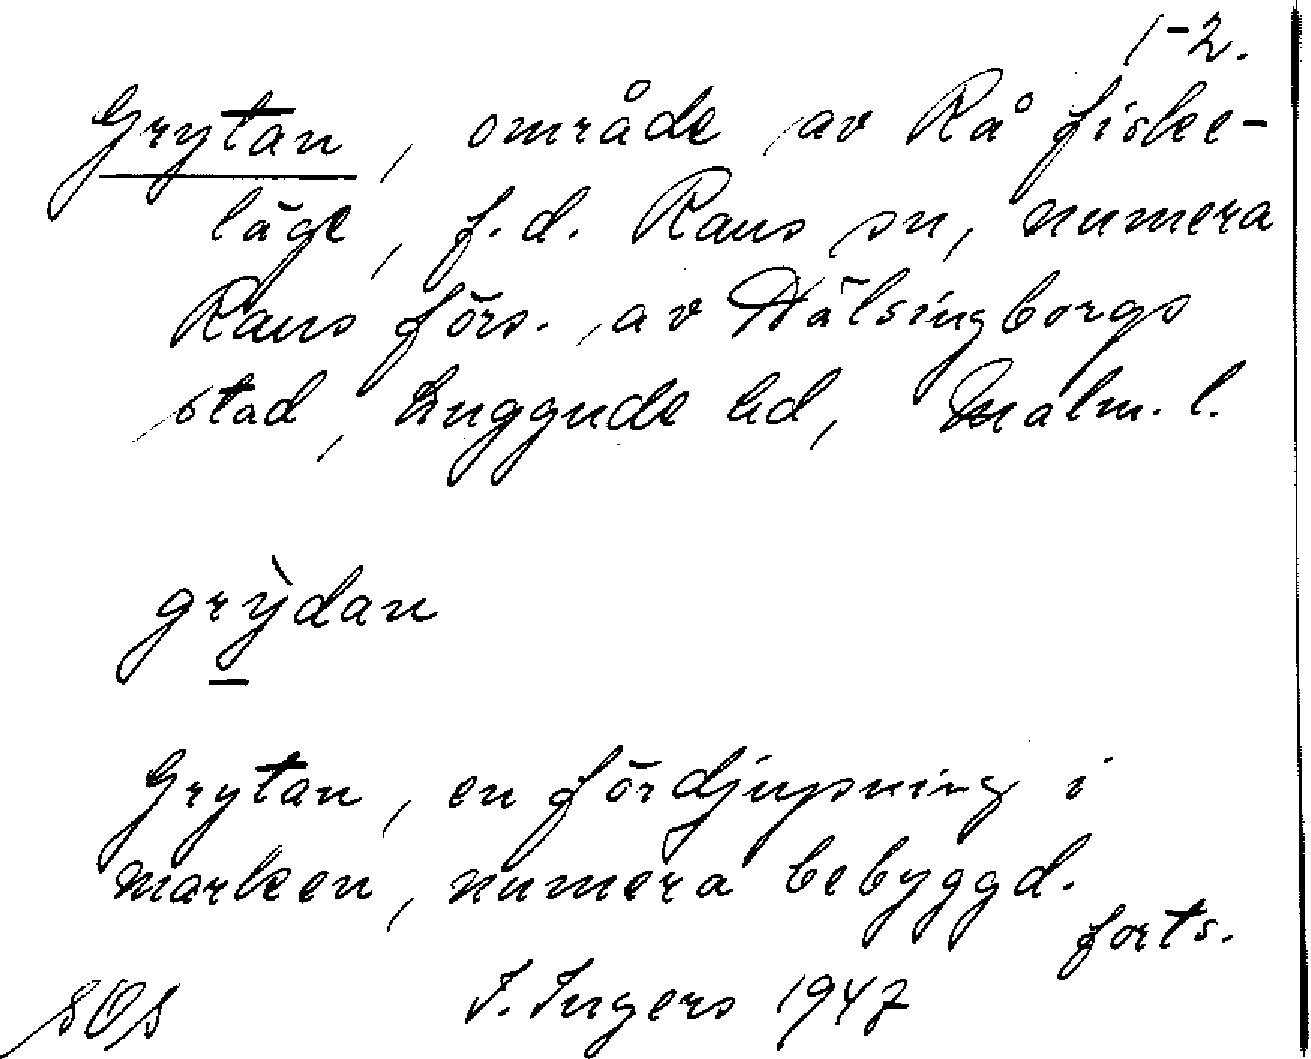 1-2.
Grytan, område av Rå fiske-
läge, f.d. Raus sn, numera
Raus förs. av Hälsingborgs
stad, Luggude hd, Malm. l.
grỳdan
Grytan, en fördjupning i
marken, numera bebyggd.
forts.
SOS I. Ingers 1947